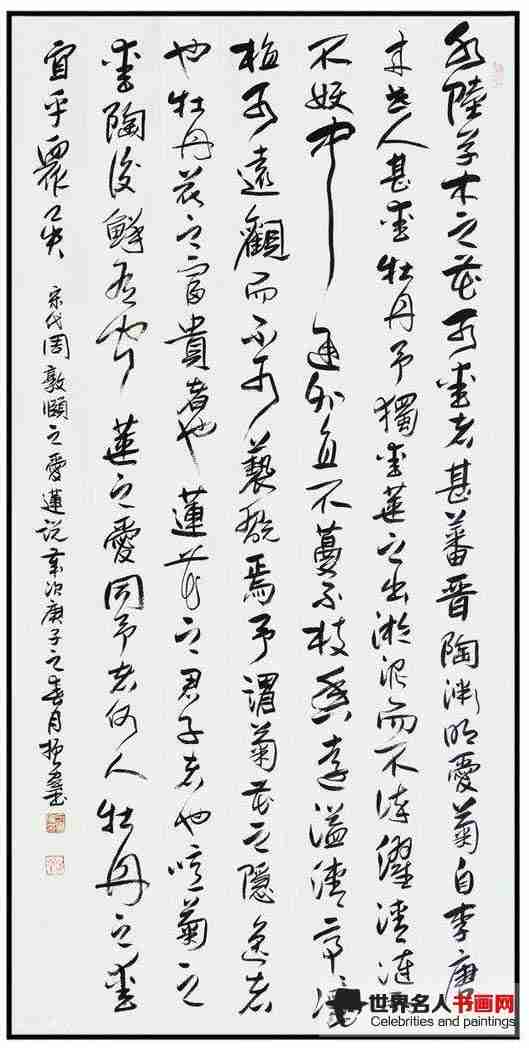 水陸草木之花可愛者甚蕃晉陶渊明愛菊自李唐
来世人甚愛牡丹予獨愛蓮之出淤泥而不染濯清漣
不妖中通外直不蔓不枝香遠溢清亭淨
植可遠觀而不可褻翫焉予謂菊花之隱逸者
也牡丹花之富貴者也蓮花之君子者也噫菊之
愛陶後鮮有聞蓮之愛同予者何人牡丹之愛
宜乎眾矣
宋代周敦頤之愛蓮说歲次庚子之春月
世界名人书画网
Celebrities and paintings